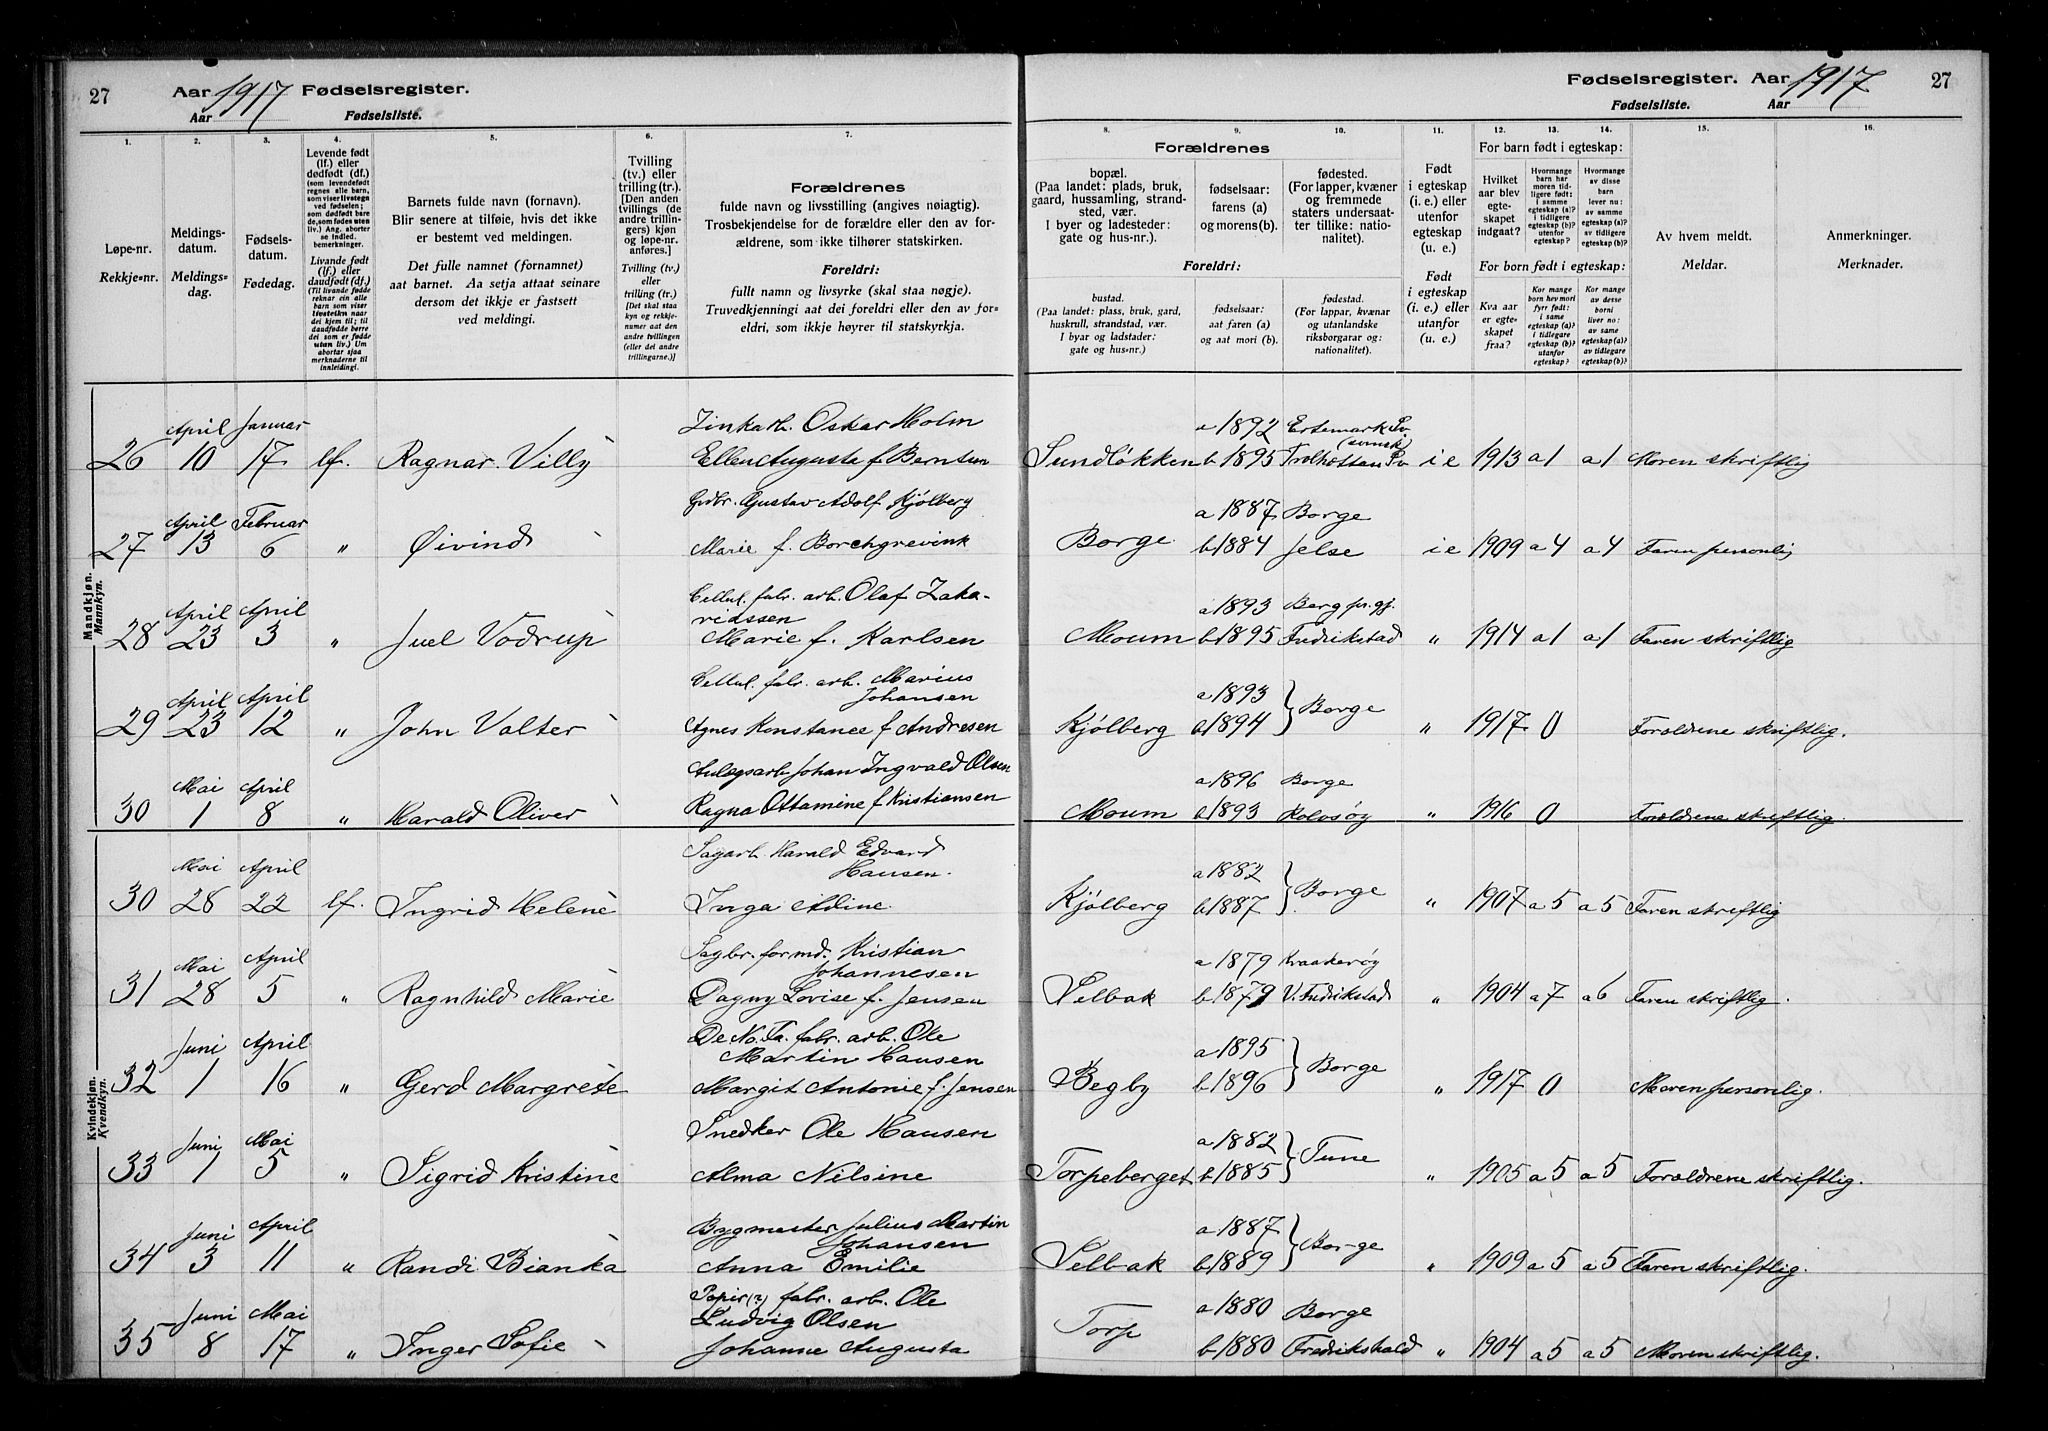 27 Aar 1917 Fødselsregister.
Aar Fødselsliste.
Fødselsregister. Aar 1917 27
Fødselsliste. Aar
1. 2. 3. 4. 5. 6. 7.
8. 9. 10. 11. 12. 13. 14. 15. 16.
Løpe-nr.
Rekkje-nr.
Meldings-
datum.
Meldings-
dag.
Fødsels-
datum.
Fødedag.
Levende født
(lf.) eller
dødfødt (df.)
(som levendefødt
regnes alle barn,
som viser livstegn
ved fødselen;
som dødfødt bare
de, som fødes uten
liv.) Ang. aborter
se indled.
bemerkninger.
Livande født
(lf.) eller
daudfødt (df.)
(Til livande fødde
reknar ein alle
born som viser
livsteikn naar
dei kjem til; til
daudfødde berre
dei som er fødde
utan liv.) Um
abortar sjaa
merknaderne til
innleidingi.
Barnets fulde navn (fornavn).
Blir senere at tilføie, hvis det ikke
er bestemt ved meldingen.
Det fulle namnet (fornamnet)
aat barnet. Aa setja attaat seinare
dersom det ikkje er fastsett
ved meldingi.
Tvilling
(tv.) eller
trilling (tr.)
[Den anden
tvillings (de
andre trillin-
gers) kjøn
og løpe-nr.
anføres.]
Tvilling (tv.)
eller
trilling (tr.)
[Det skal staa
kyn og rekkje-
numer aat den
andre tvillingen
(eller dei andre
trillingarne.)]
Forældrenes
fulde navn og livsstilling (angives nøiagtig).
Trosbekjendelse for de forældre eller den av for-
ældrene, som ikke tilhører statskirken.
Foreldri:
fullt namn og livsyrke (skal staa nøgje).
Truvedkjenningi aat dei foreldri eller den av for-
eldri, som ikkje høyrer til statskyrkja.
Forældrenes
bopæl.
(Paa landet: plads, bruk,
gaard, hussamling, strand-
sted, vær.
I byer og ladesteder:
gate og hus-nr.).
fødselsaar:
farens (a)
og morens (b).
fødested.
(For lapper, kvæner
og fremmede
staters undersaat-
ter tillike: natio-
nalitet).
Foreldri:
bustad.
(Paa landet: plass, bruk, gard,
huskrull, strandstad, vær.
I byar og ladstader:
gate og hus-nr.)
fødselsaar:
aat faren (a)
og aat mori (b).
fødestad.
(For lappar, kvænar
og utanlandske
riksborgarar og:
nationalitet).
Født
i egteskap
(i. e.) eller
utenfor
egteskap
(u. e.)
Født
i egteskap
(i. e.) eller
utanfor
(u. e.)
For barn født i egteskap:
Hvilket
aar blev
egte-
skapet
indgaat?
Hvormange
barn har
moren tid-
ligere født:
i samme
egteskap (a)?
i tidligere
egteskap (b)?
utenfor
egteskap?
Hvormange
av disse
barn
lever nu:
av samme
egteskap (a)?
av tidligere
egteskap (b)?
For born født i egteskap:
Kva aar
er egte-
skapet
fraa?
Kor mange
born hev mori
fyrr født:
i same
egteskap (a)?
i tidlegare
egteskap (b)?
utanfor
egteskap?
Kor mange
av desse
borni
liver no:
av same
egteskap (a)?
av tidlegare
egteskap (b)?
Av hvem meldt.
Meldar.
Anmerkninger.
Merknader.
Mandkjøn.
Mannkyn.
April Januar Oskar Holm a 1892 Ertemark Sv
26 10 17 lf. Ragnar Villy Ellen Augusta f Berntsen Sundløkken b 1895 (svensk) Trolhættan Sv i e 1913 a 1 a 1 Moren skriftlig
April Februar Gustav Adolf Kjølberg a 1887 Borge
27 13 6 " Øivind Marie f. Borchgrevink Borge b 1884 Jelse i e 1909 a 4 a 4 Faren personlig
April April Cellul. fabr. arb. Olaf Zaka-
ridssen a 1893 Berg pr. gj.
28 23 3 " Juel Vodrup Marie f. Karlsen Moum b 1895 Fredrikstad " 1914 a 1 a 1 Faren skriftlig
April April Cellul. fabr. arb. Marius
Johansen a 1893
29 23 12 " John Valter Agnes Konstance f Andresen Kjølberg b 1894 } Borge " 1917 0 Forældrene skriftlig.
Mai April Anlegsarb. Johan Ingvald Olsen a 1896 Borge
30 1 8 " Harald Oliver Ragna Ottamine f Kristiansen Moum b 1893 Rolvsøy " 1916 0 Forældrene skriftlig.
Kvindekjøn.
Kvendkyn.
Mai April Sagarb. Harald Edvard
Hansen. a 1882
30 28 22 lf. Ingrid Helene Inga Adine Kjølberg b 1887 } Borge " 1907 a 5 a 5 Faren skriftlig
Mai April Sagbr. formd. Kristian
Johannesen a 1879 Kraakerøy
31 28 5 " Ragnhild Marie Dagny Lovise f. Jensen Selbak b 1879 V. Fredrikstad " 1904 a 7 a 6 Faren skriftlig.
Juni April De No. Ta. fabr. arb. Ole
Martin Hansen a 1895
32 1 16 " Gerd Margrete Margit Antonie f. Jensen Begby b 1896 } Borge " 1917 0 Moren personlig.
Juni Mai Snedker Ole Hansen a 1882
33 1 5 " Sigrid Kristine Alma Nilsine Torpeberget b 1885 } Tune " 1905 a 5 a 5 Forældrene skriftlig.
Juni April Bygmester Julius Martin
Johansen a 1887
34 3 11 " Randi Bianka Anna Emilie Selbak b 1889 } Borge " 1909 a 5 a 5 Faren skriftlig.
Juni Mai Papir (?) fabr. arb. Ole
Ludvig Olsen a 1880 Borge
35 8 17 " Inger Sofie Johanne Augusta Torp b 1880 Fredrikshald " 1904 a 5 a 5 Moren skriftlig.